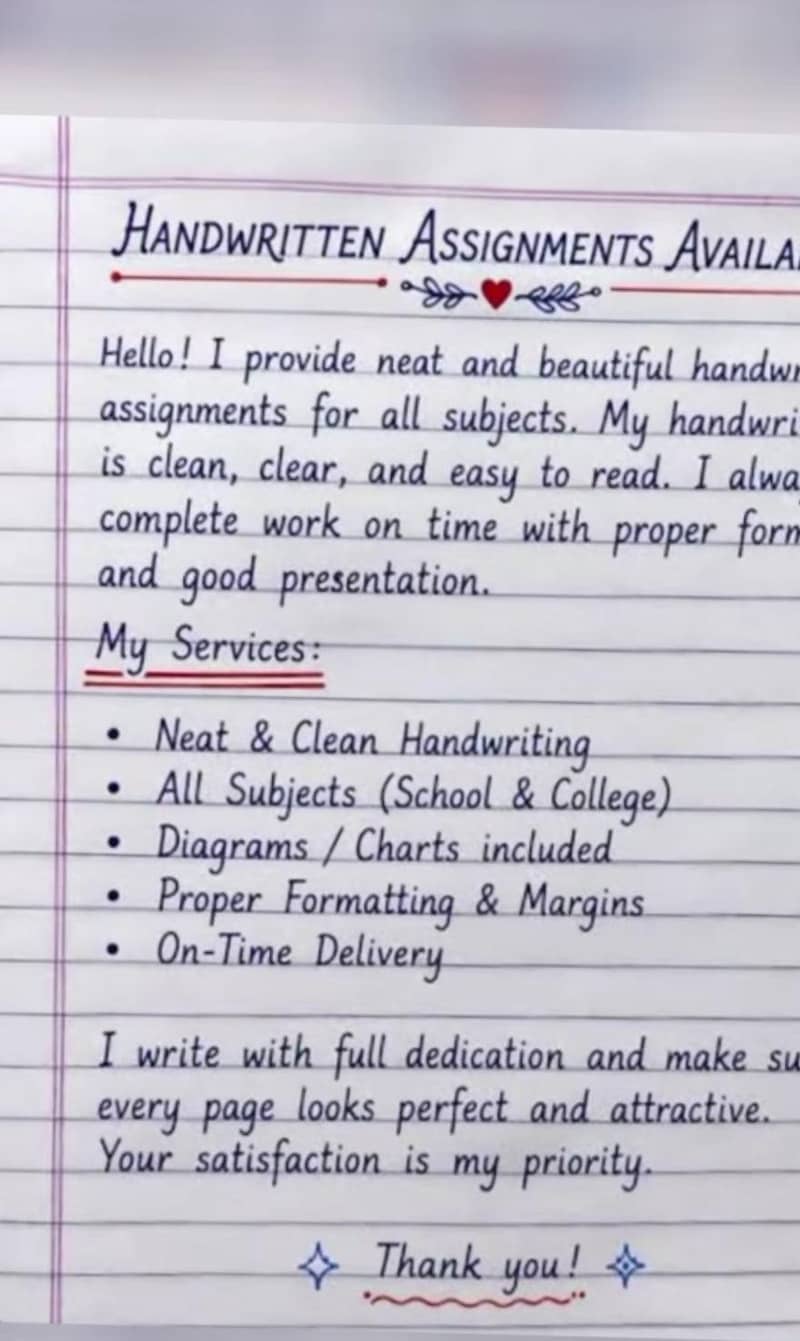 HANDWRITTEN ASSIGNMENTS
Hello! I provide neat and beautiful
assignments for all subjects. My
is clean, clear, and easy to read. I
complete work on time with proper
and good presentation.
My Services:
• Neat & Clean Handwriting
• All Subjects (School & College)
• Diagrams / Charts included
• Proper Formatting & Margins
• On-Time Delivery
I write with full dedication and make
every page looks perfect and attractive.
Your satisfaction is my priority.
Thank you!